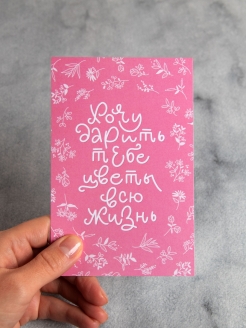 Хочу
дарить
тебе
цветы
всю
жизнь